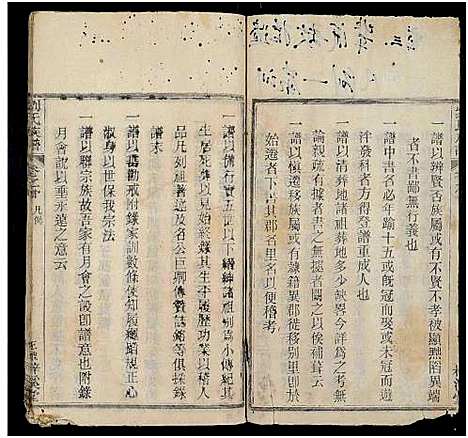 一譜以辨賢否族屬或有不賢不孝被顯黜異端
者不書鄙無行義也
一譜中書名必年踰十五或旣冠而娶或未冠而遊
泮發科者方得登譜重成人也
一譜以清葬地諸祖葬地多少缺畧今詳爲之考無
疏漏有據者書之無據者闕之以俟補葺云
一譜以愼遷移族屬或有隸籍異郡徙移别里卽于
始遷者下書其郡名里名以便稽考
一譜以備行實五世以下縉紳諸祖别爲小傳紀其
生居死葬以見始終錄其生平履歷功業以稽人
品凡列祖著述及名公巨卿傳贊誌銘等俱採錄
譜末
一譜以蓦勸戒附錄家訓數條使知遵繩趨規正心
淑身以世保我宗法
一譜以聯宗族故吾家有月會之設卽譜意也附錄
月會記以垂永遠之意云
劉氏族譜
凡例